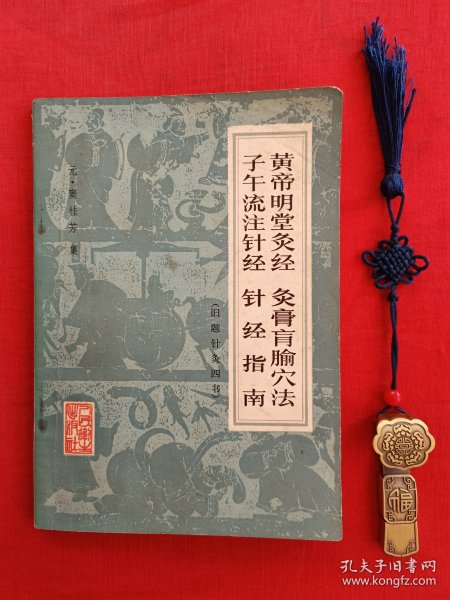 黄帝明堂灸经 灸膏肓腧穴法
子午流注针经 针经指南
(旧题针灸四书)
元·窦桂芳 集
福
孔夫子旧书网
www.kongfz.com